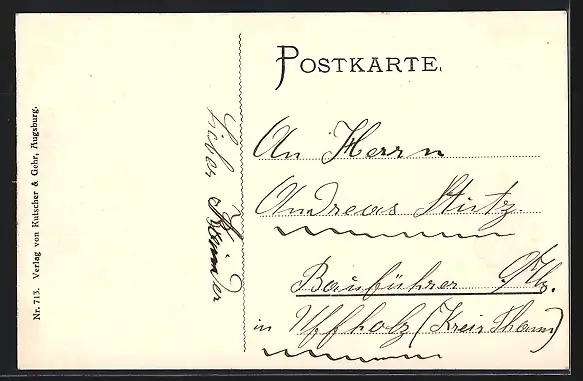 POSTKARTE.
An Herrn
Andreas Stutz
Bauführer
in Uffholz (Kreis Thann)
Lieber
Nr. 713. Verlag von Kutscher & Gehr, Augsburg.